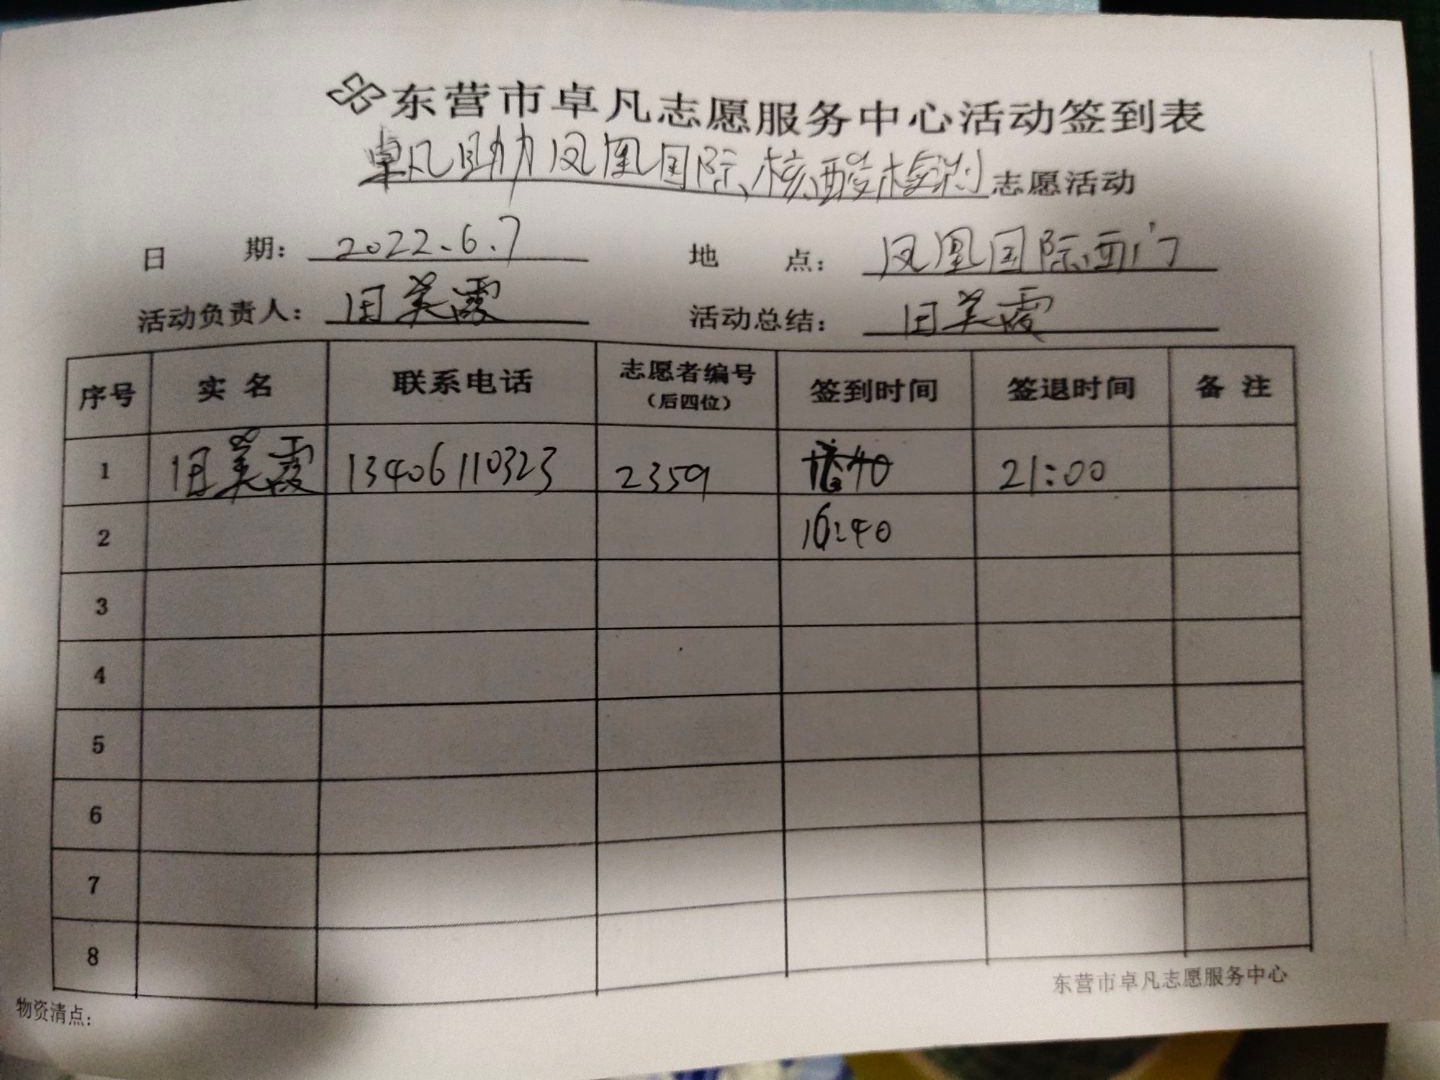 东营市卓凡志愿服务中心活动签到表
卓凡助力凤凰国际核酸检测志愿活动
日期: 2022.6.7 地点: 凤凰国际西门
活动负责人: 田美霞 活动总结: 田美霞
序号 实名 联系电话 志愿者编号(后四位) 签到时间 签退时间 备注
1 田美霞 13406110323 2359 21:00
2 16:40
3
4
5
6
7
8
东营市卓凡志愿服务中心
物资清点: